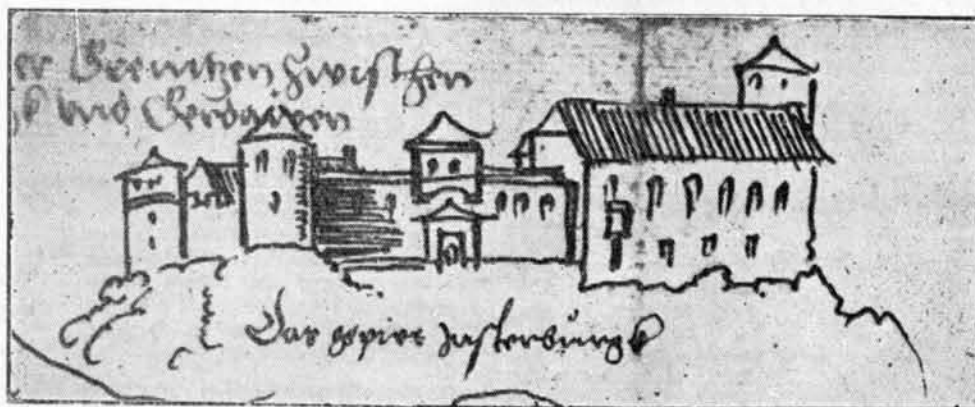 er Grenitzen zwischen
k vnd Gerdawen
Das gepiet Insterburgk